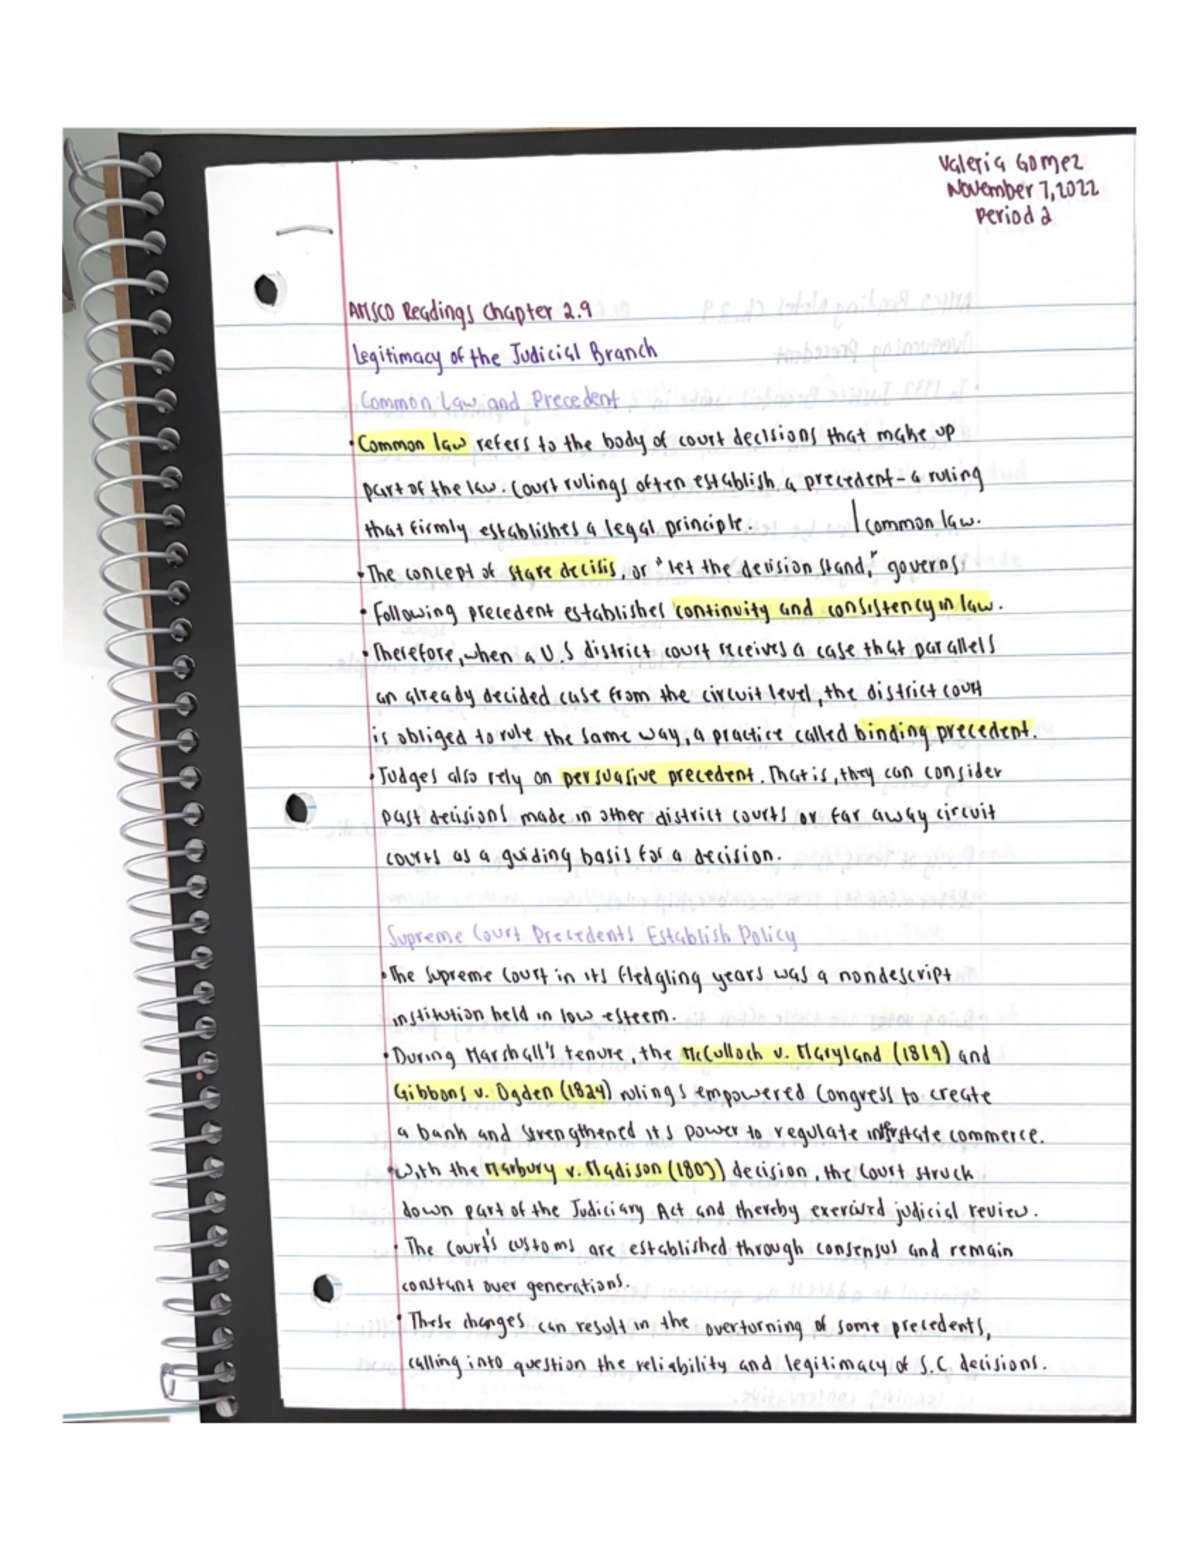 Valeria Gomez
November 7, 2022
Period 2
AMSCO Readings Chapter 2.9
Legitimacy of the Judicial Branch
Common Law and Precedent
• Common law refers to the body of court decisions that make up
part of the law. Court rulings often establish a precedent - a ruling
that firmly establishes a legal principle. | common law.
• The concept of stare decisis, or "let the decision stand," governs
• Following precedent establishes continuity and consistency in law.
• Therefore, when a U.S district court receives a case that parallels
an already decided case from the circuit level, the district court
is obliged to rule the same way, a practice called binding precedent.
• Judges also rely on persuasive precedent. That is, they can consider
past decisions made in other district courts or far away circuit
courts as a guiding basis for a decision.
Supreme Court Precedents Establish Policy
• The Supreme Court in its fledgling years was a nondescript
institution held in low esteem.
• During Marshall's tenure, the McCulloch v. Maryland (1819) and
Gibbons v. Ogden (1824) rulings empowered Congress to create
a bank and strengthened its power to regulate interstate commerce.
• With the Marbury v. Madison (1803) decision, the Court struck
down part of the Judiciary Act and thereby exercised judicial review.
• The Court's customs are established through consensus and remain
constant over generations.
• These changes can result in the overturning of some precedents,
calling into question the reliability and legitimacy of S.C. decisions.